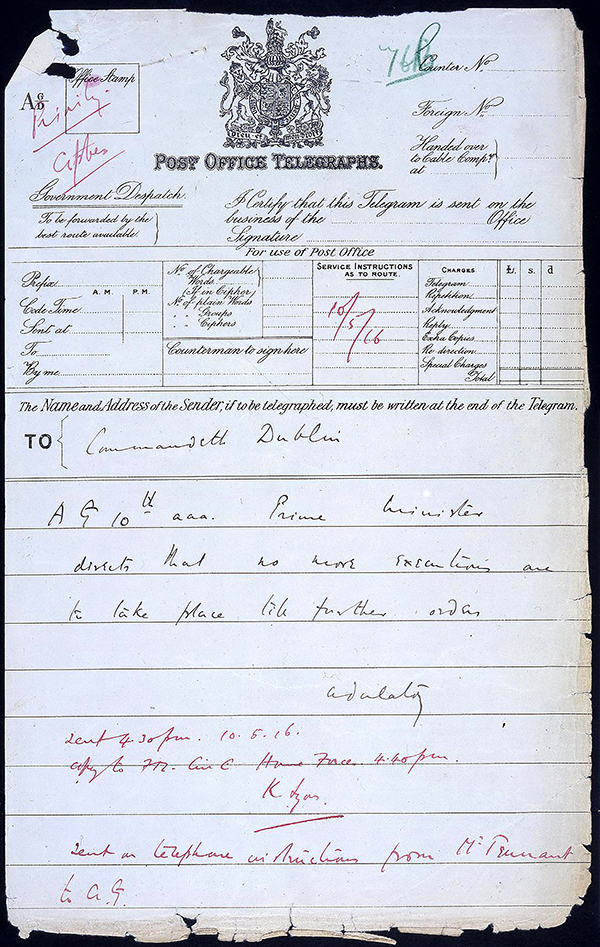 76
Office Stamp
AG
Priority
Cipher
DIEU ET MON DROIT
POST OFFICE TELEGRAPHS.
Counter No
Foreign No
Handed over
to Cable Compy
at
Government Despatch.
To be forwarded by the
best route available.
I Certify that this Telegram is sent on the
business of the Office
Signature
For use of Post Office
Prefix
A.M. P.M.
Code Time
Sent at
To
By me
No of Chargeable
Words
(If in Cipher)
No of plain Words
" " Groups
" " Ciphers
Counterman to sign here
SERVICE INSTRUCTIONS
AS TO ROUTE.
10/5/16
CHARGES £. s. d
Telegram
Repetition
Acknowledgment
Reply
Extra Copies
Re-direction
Special Charges
Total
The Name and Address of the Sender, if to be telegraphed, must be written at the end of the Telegram.
TO { Commandeth Dublin
A G 10th aaa. Prime Minister
directs that no more executions are
to take place till further orders
adulatory
Sent 4.30 pm. 10.5.16.
copy to FM. C in C Home Forces 4.40 pm.
Sent on telephone instructions from Mr Tennant
to A.G.